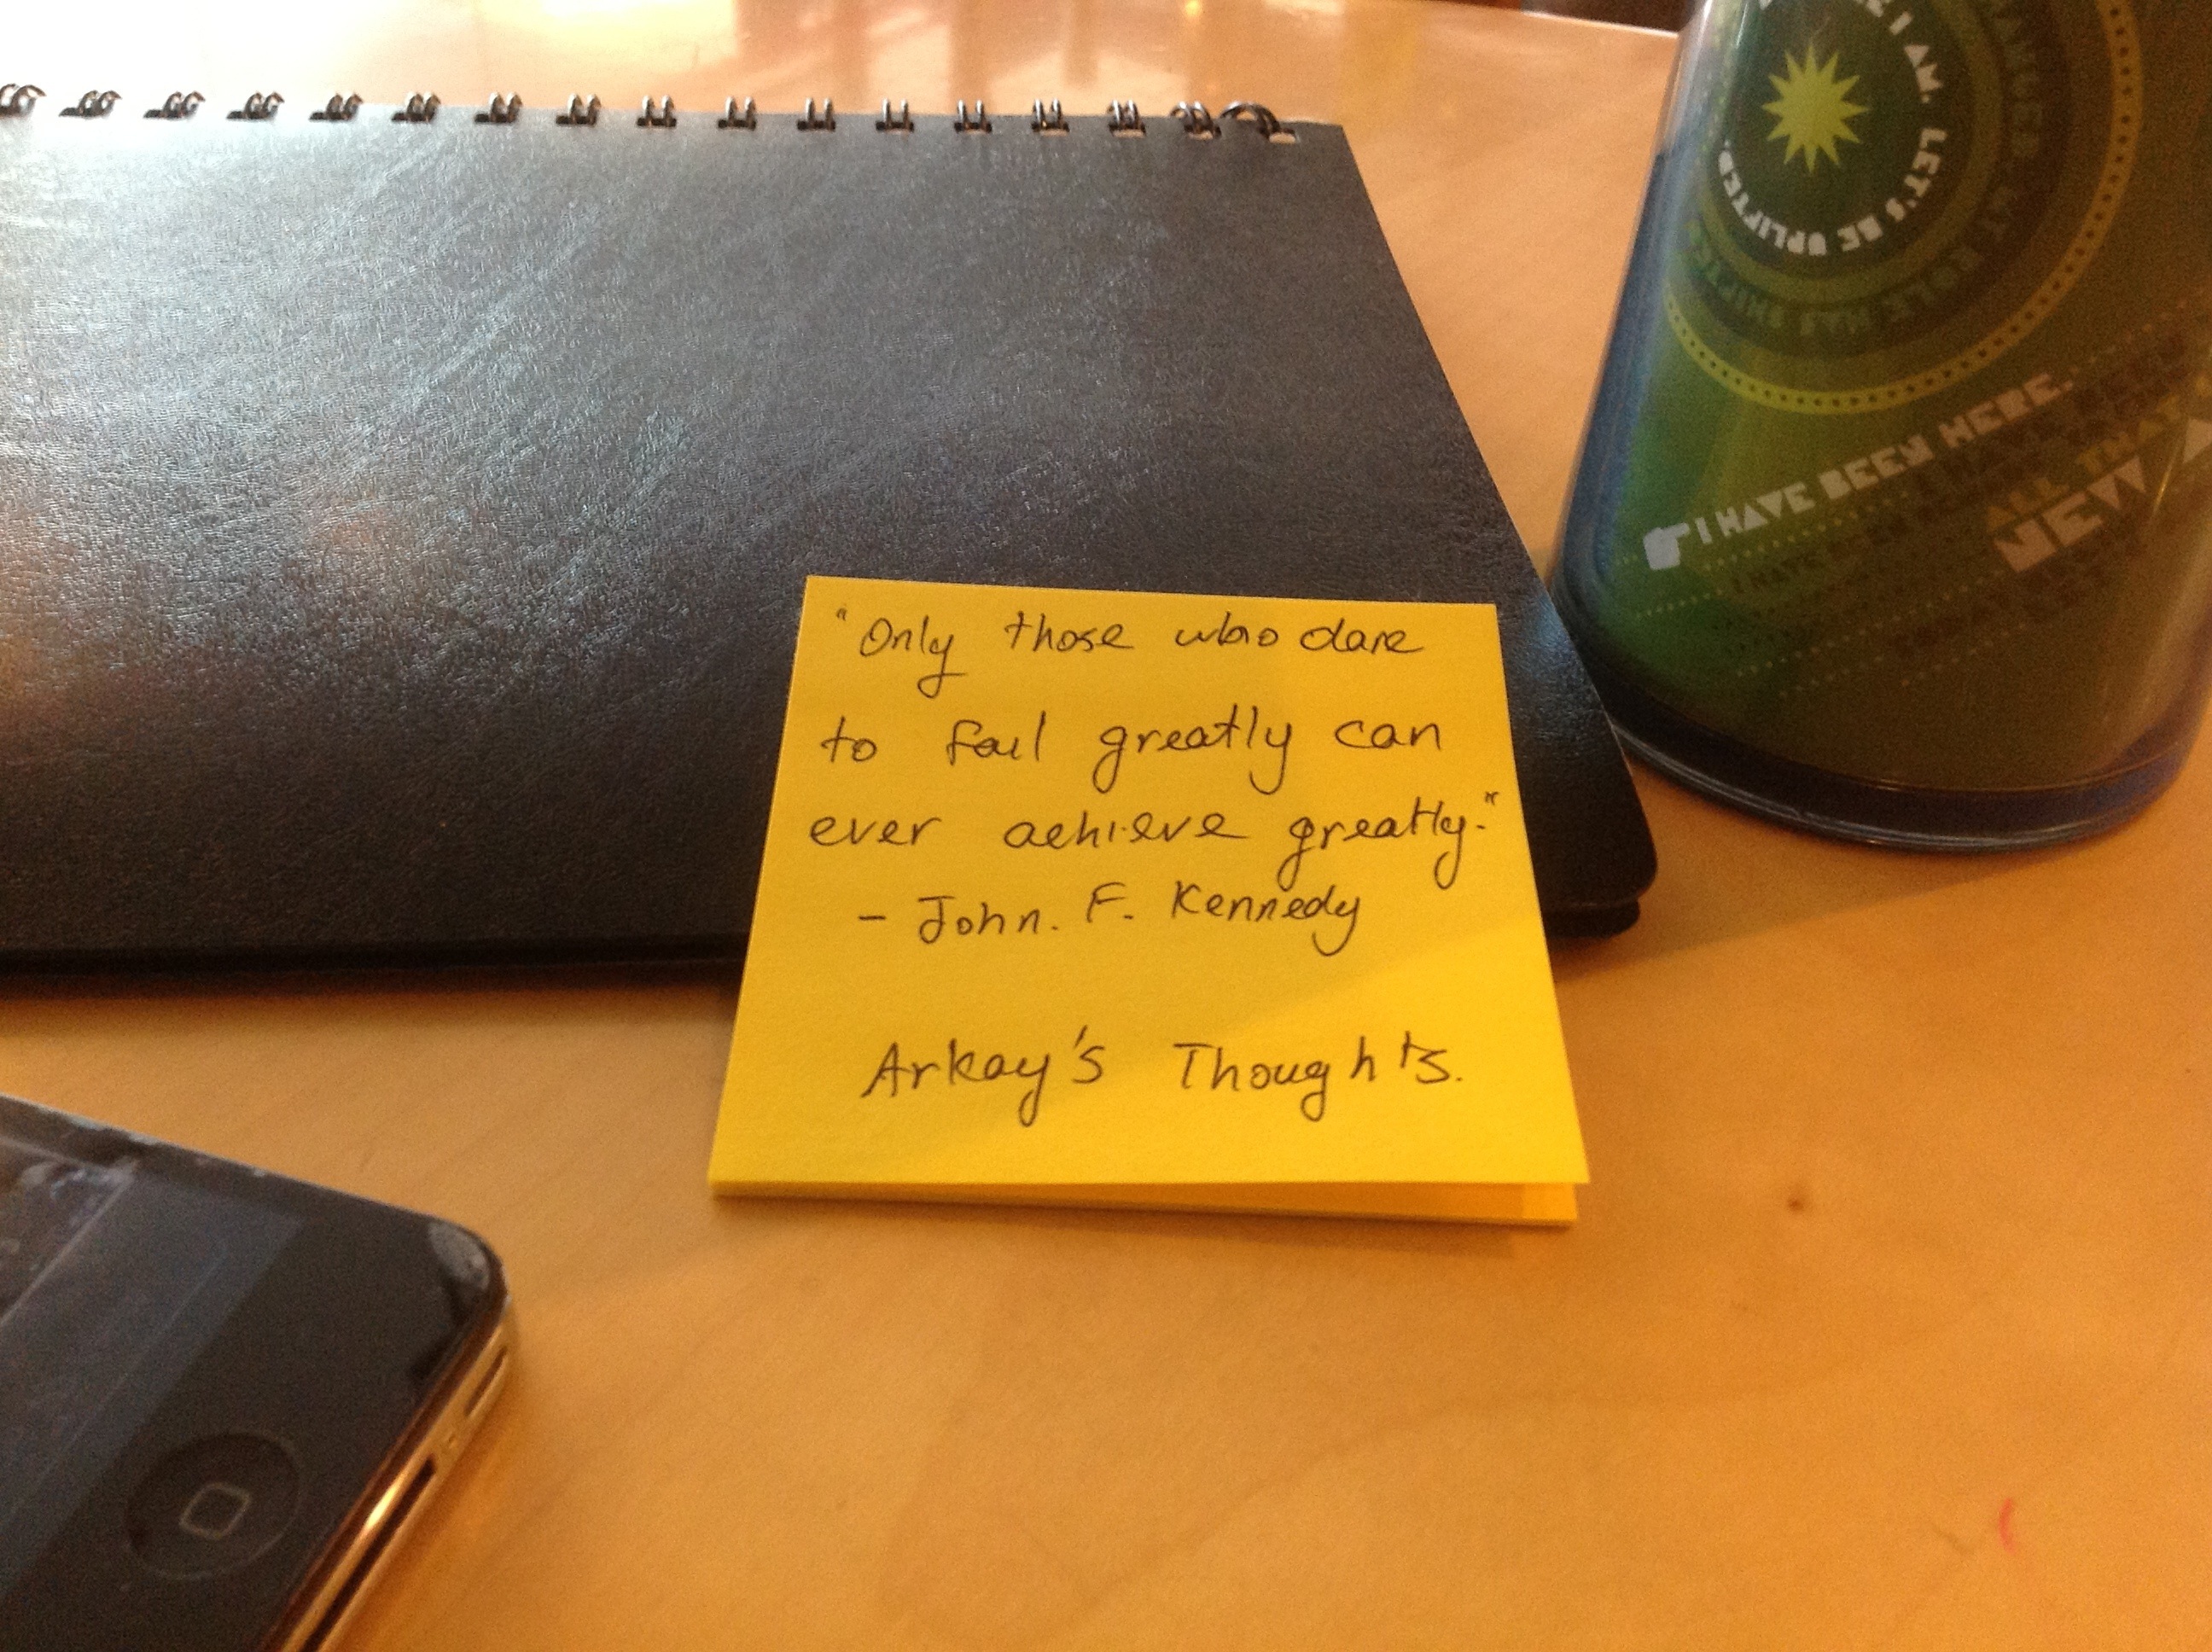 "Only those who dare
to fail greatly can
ever achieve greatly."
- John. F. Kennedy
Arkay's Thoughts.
I AM. LET'S BE UPLIFTED.
ROLE HAS SHIFTED
I HAVE BEEN HERE.
ALL THAT
NEW